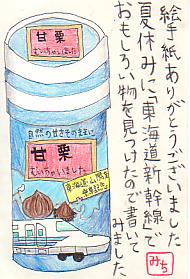 絵手紙ありがとうございました
夏休みに「東海道新幹線」で
おもしろい物を見つけたので書いて
みました
みち
甘栗
むいちゃいました
自然の甘さそのままに
甘栗
むいちゃいました
東海道